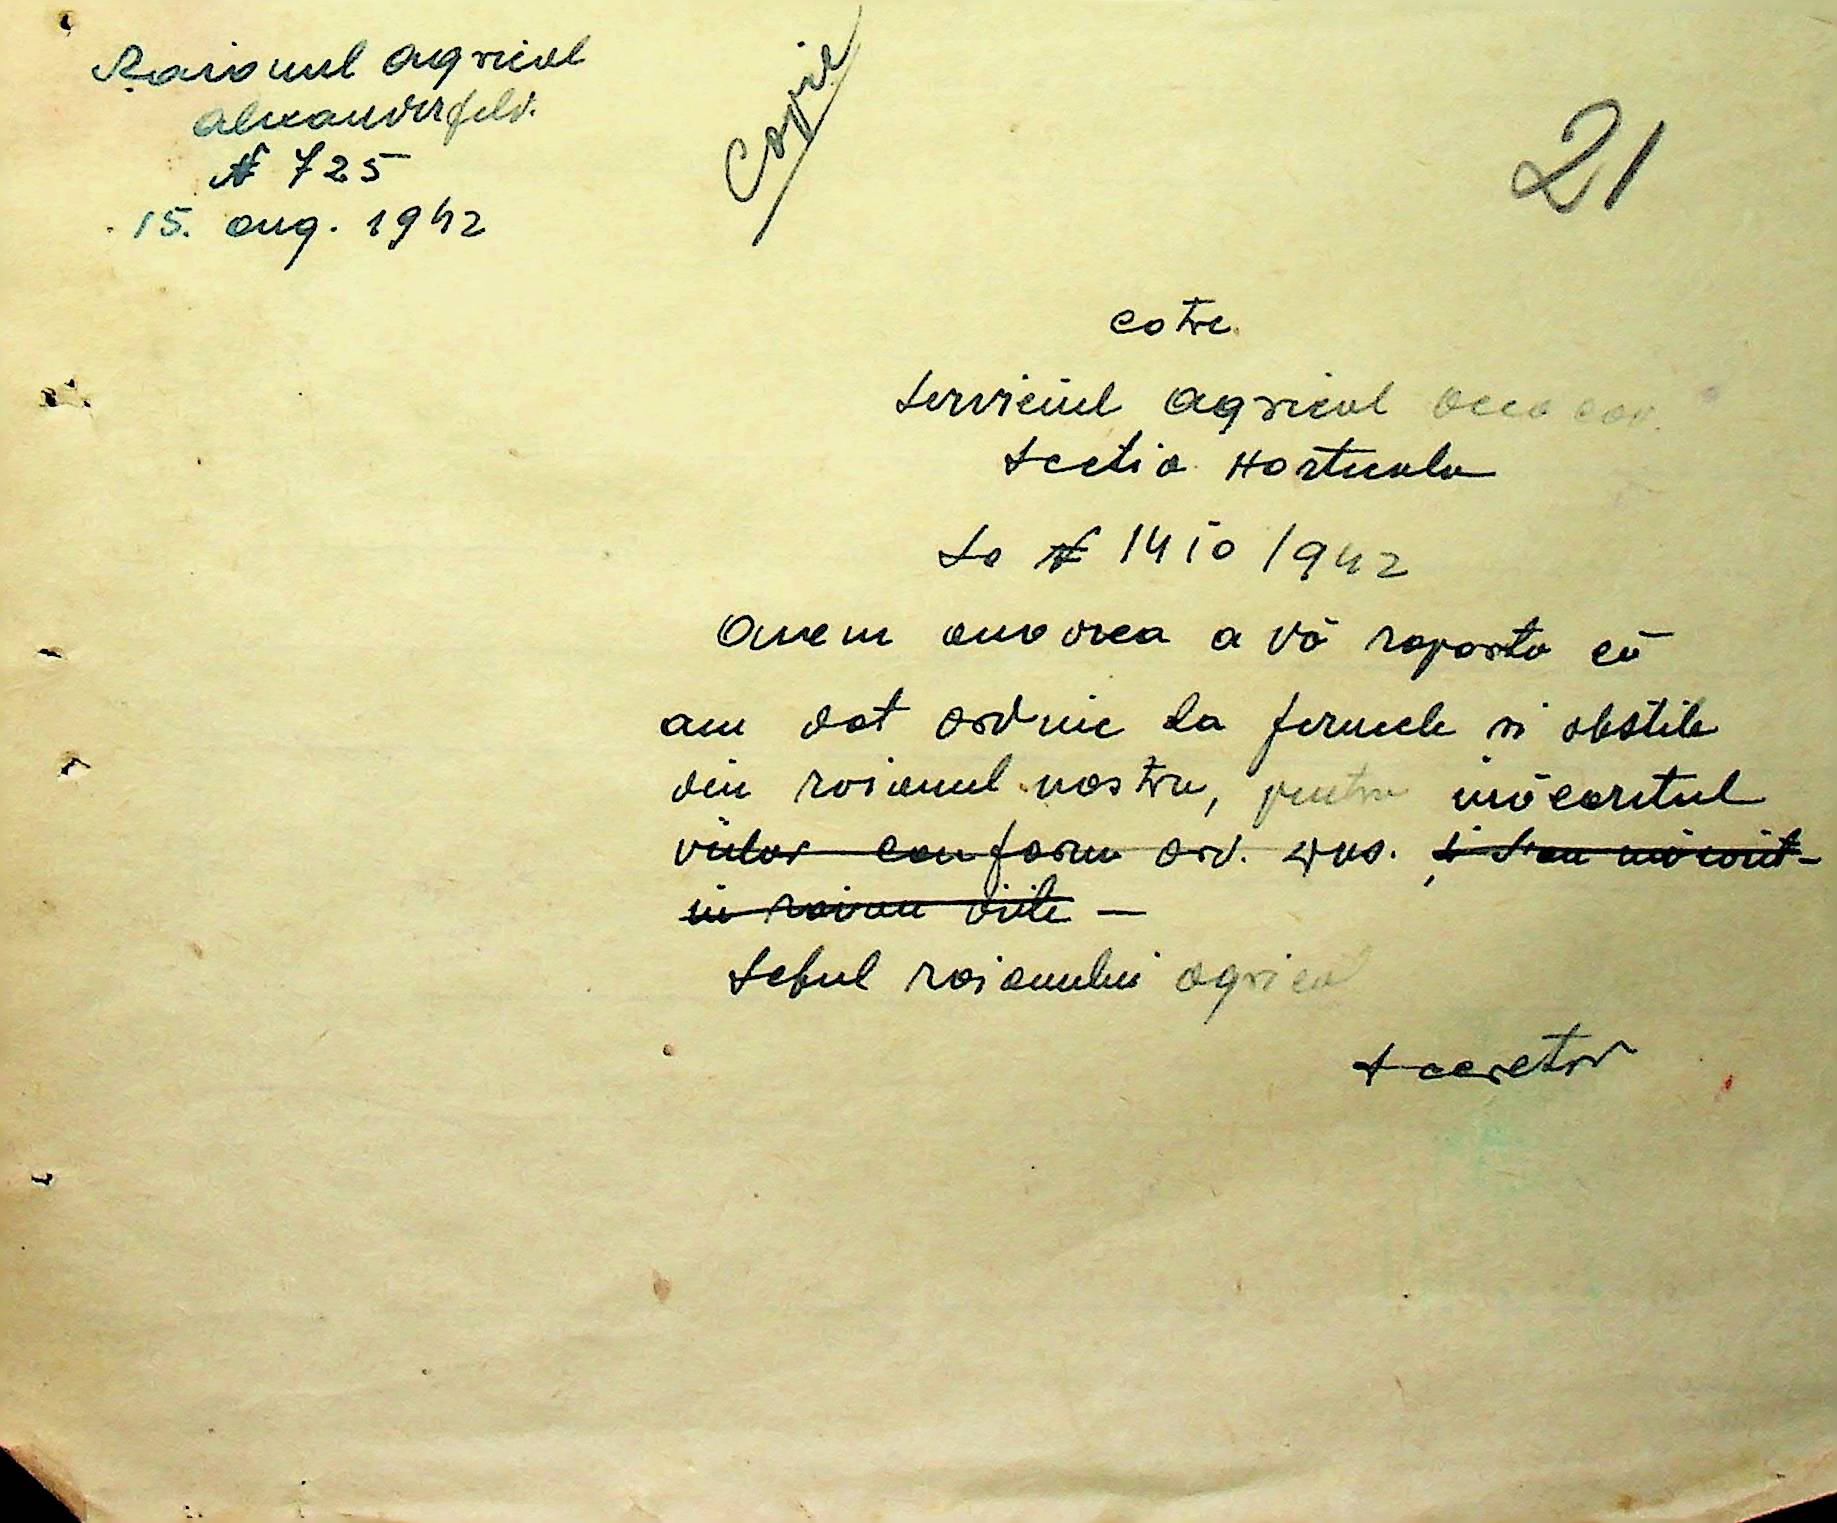 Raionul agricol
alexanderfeld.
N 725
15. aug. 1942
Copie
21
catre
Serviciul agricol
Sectia Horticola
La N 1410/942
Avem onoarea a vă raporta că
am dat ordine la fermele si obstile
din raionul nostru, pentru
viilor conform ord. dvs.
in raion viile —
Seful raionului agricol
Secretar